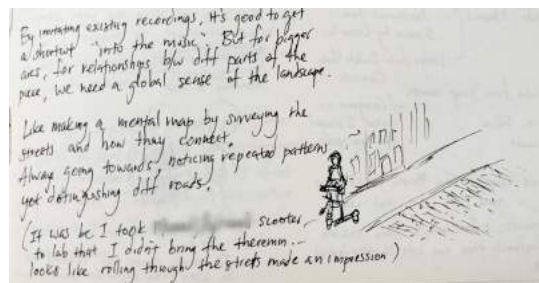 By imitating existing recordings, it's good to get
a shortcut "into the music" But for bigger
arcs, for relationships b/w diff parts of the
piece, we need a global sense of the landscape.
Like making a mental map by surveying the
streets and how they connect.
Always going towards, noticing repeated patterns
yet distinguishing diff roads.
(It was bc I took scooter
to lab that I didn't bring the theremin --
looks like rolling through the streets made an impression)